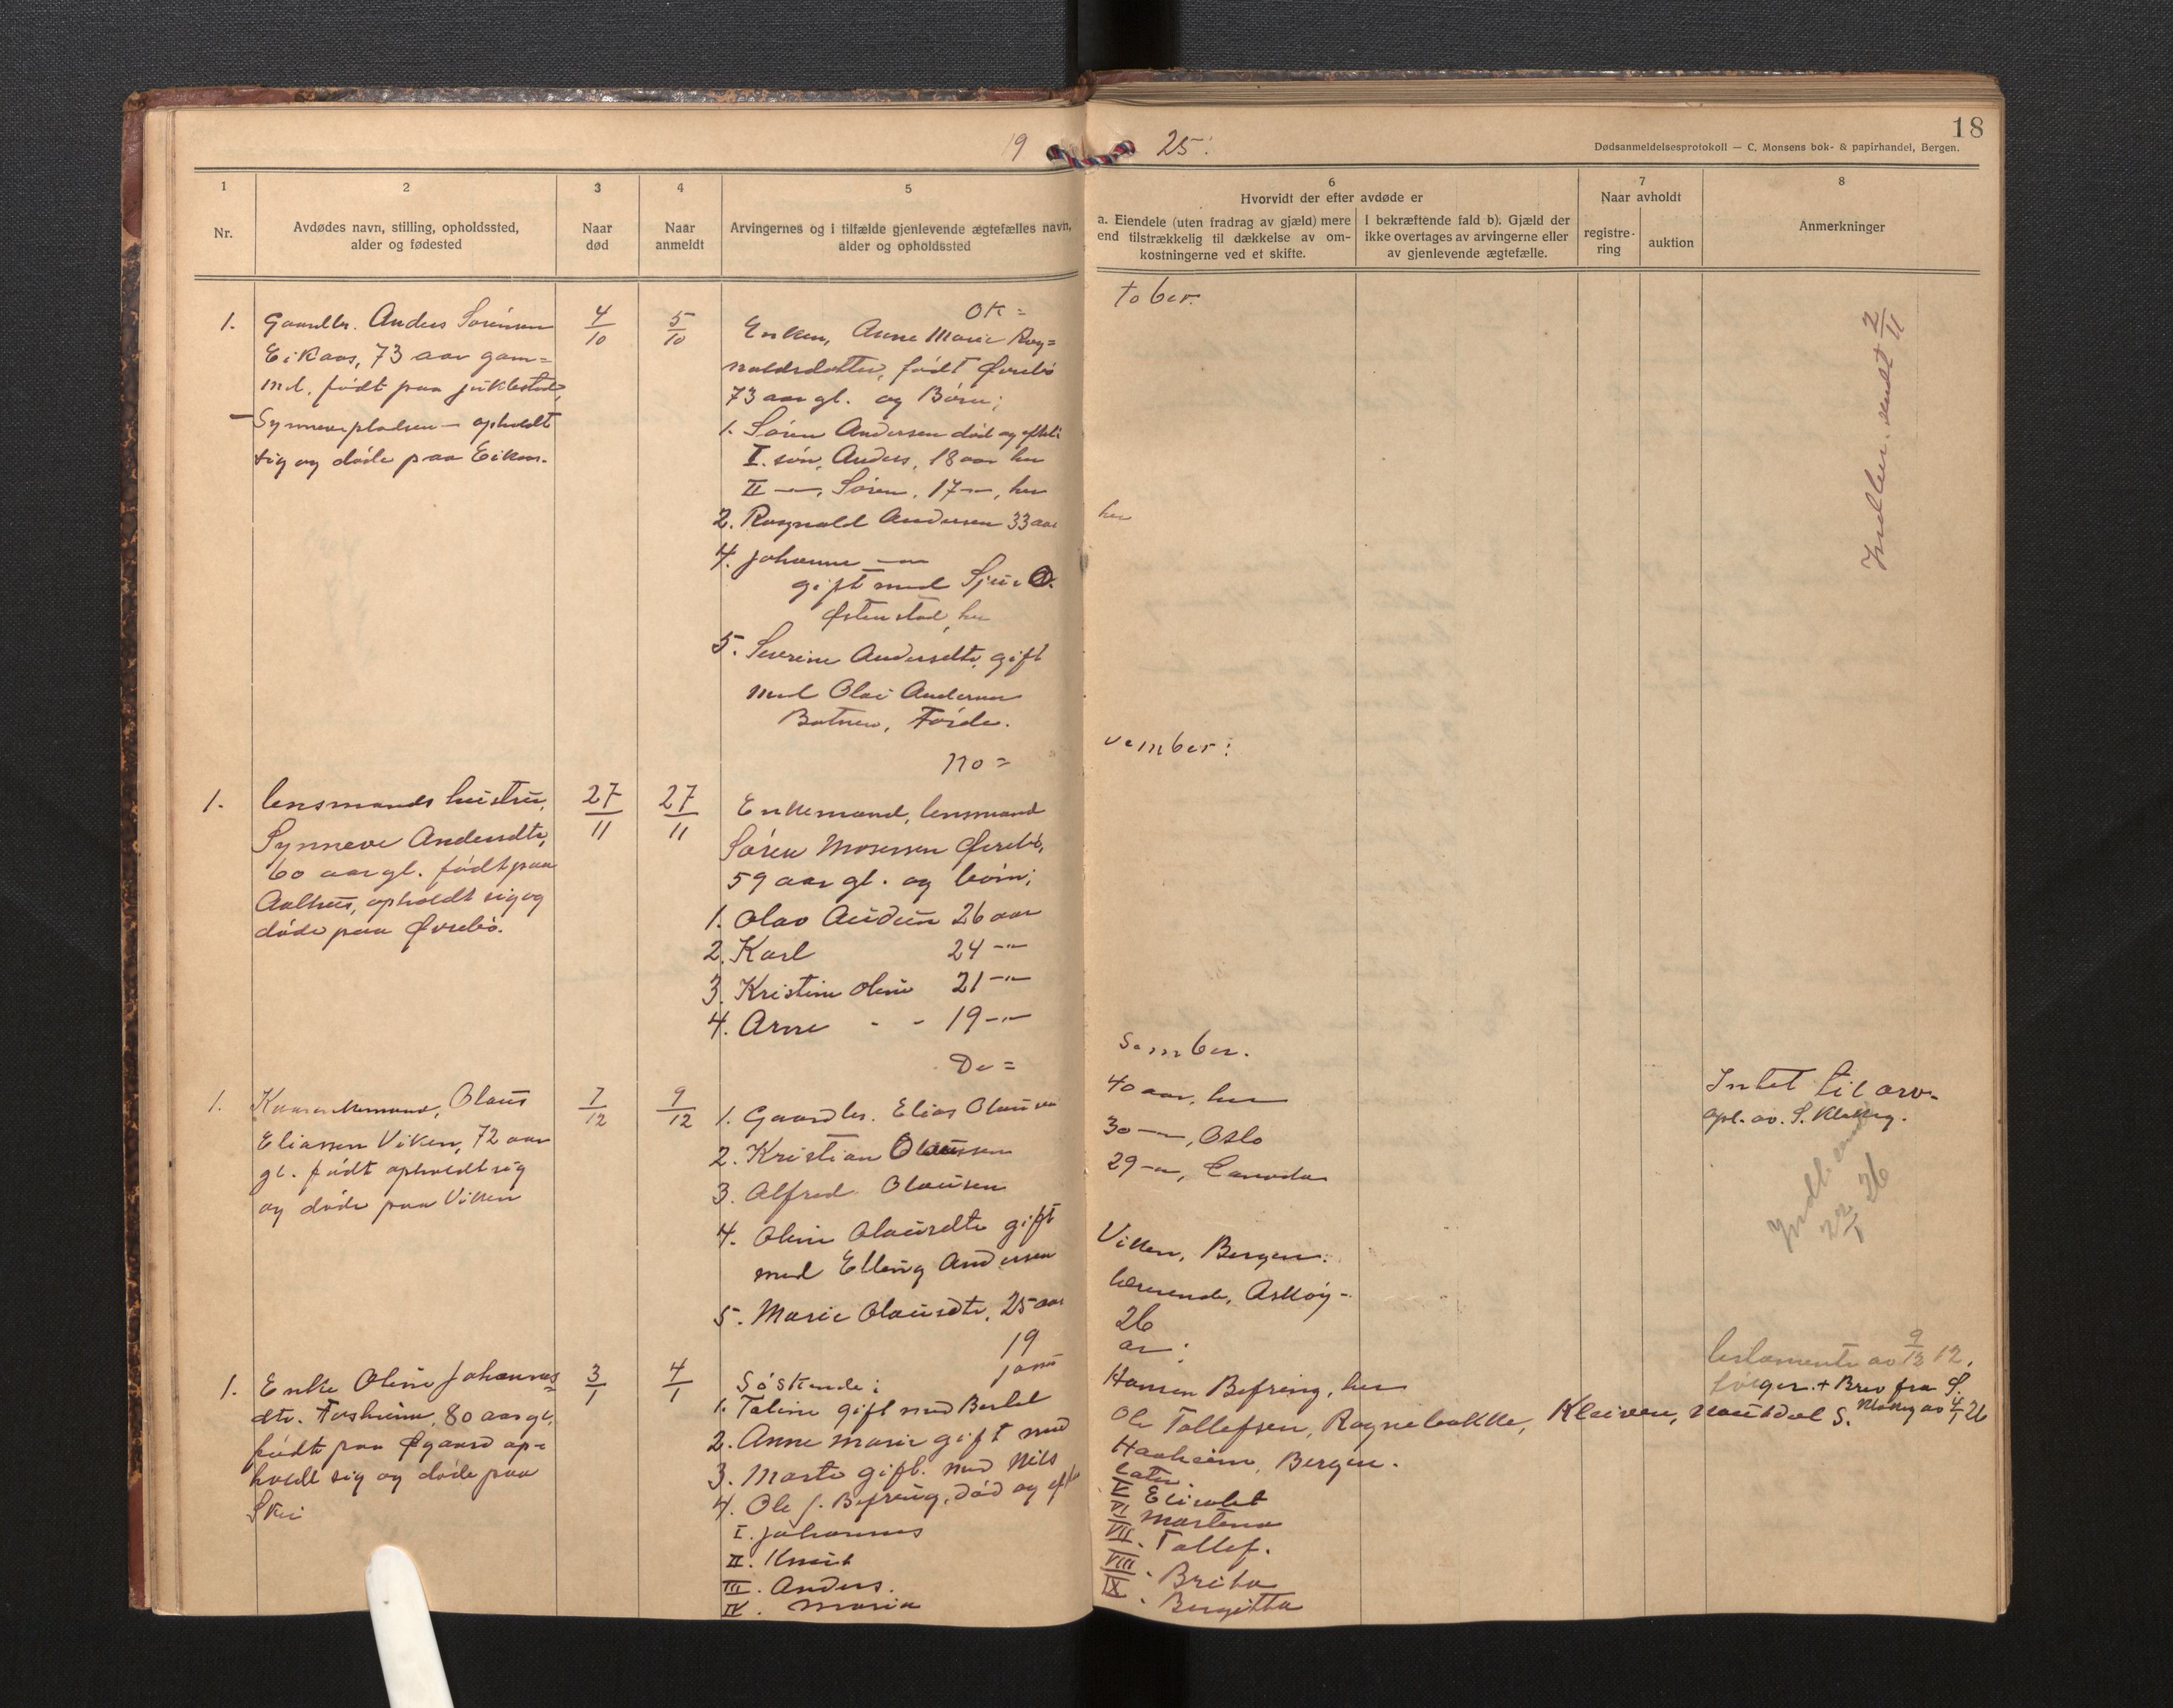 19
25.
18
Dødsanmeldelsesprotokoll — C. Monsens bok- & papirhandel, Bergen.
1
Nr.
2
Avdødes navn, stilling, opholdssted,
alder og fødested
3
Naar
død
4
Naar
anmeldt
5
Arvingernes og i tilfælde gjenlevende ægtefælles navn,
alder og opholdssted
6
Hvorvidt der efter avdøde er
a. Eiendele (uten fradrag av gjæld) mere
end tilstrækkelig til dækkelse av om-
kostningerne ved et skifte.
I bekræftende fald b). Gjæld der
ikke overtages av arvingerne eller
av gjenlevende ægtefælle.
7
Naar avholdt
registre-
ring
auktion
8
Anmerkninger
Ok=
tober.
1. Gaardbr. Anders Sørensen
Eikaas, 73 aar gam=
mel, født paa Jiklestad,
— Synnevepladsen — opholdt
sig og døde paa Eikaas.
4/10
5/10
Enken, Anne Marie Rag=
naldsdotter, født Øvrebø
73 aar gl. og Børn;
1. Søren Andersen død og efterl.
I. søn, Anders, 18 aar her
II —"—, Søren, 17 —"—, her
2. Ragnald Andersen 33 aar
her
4. Johanne —"—
gift med Sjur O.
Østenstad, her
5. Severine Andersdtr. gift
med Olai Andersen
Botnen, Førde.
Indber. sendt 2/11
No=
vember:
1. Lensmands hustru,
Synneve Andersdtr,
60 aar gl. født paa
Aalhus, opholdt sig og
døde paa Øvrebø.
27/11
27/11
Enkemand, lensmand
Søren Mosessen Øvrebø,
59 aar gl. og børn;
1. Olav Audun 26 aar
2. Karl 24 —"—
3. Kristine Oline 21 —"—
4. Arne - - 19 —"—
De=
sember.
1. Kaarenkemand, Olaus
Eliassen Viken, 72 aar
gl. født opholdt sig
og døde paa Viken
7/12
9/12
1. Gaardbr. Elias Olaussen
40 aar, her
2. Kristian Olaussen
30 —"—, Oslo
3. Alfred Olausen
29 —"—, Canada
4. Oline Olausdtr gift
med Elling Andersen
Viken, Bergen.
5. Marie Olausdtr. 25 aar
lærerinde, Askøy -
Intet til arv.
opl. av. S. Klakeg.
Indb. sendt
22/1 26
19
26
janu
ar:
1. Enke Oline Johannes=
dtr. Fosheim, 80 aar gl.
født paa Øgaard op=
holdt sig og døde paa
Skei
3/1
4/1
Søskende:
1. Taline gift med Bertel
Hansen Befring, her
2. Anne Marie gift med
Ole Tollefsen, Ragnebakke, Kleiven, Naustdal S.
3. Marta gift. med Nils
Haaheim, Bergen.
4. Ole J. Befring, død og efter
later.
I. Johannes
II. Knut
III. Anders.
IV. Maria
V Elisabet
VI Martena
VII. Tollef.
VIII. Brita
IX. Bergitta
testamente av 9/12 12.
følger. + Brev fra S.
Klakeg av 4/1 26